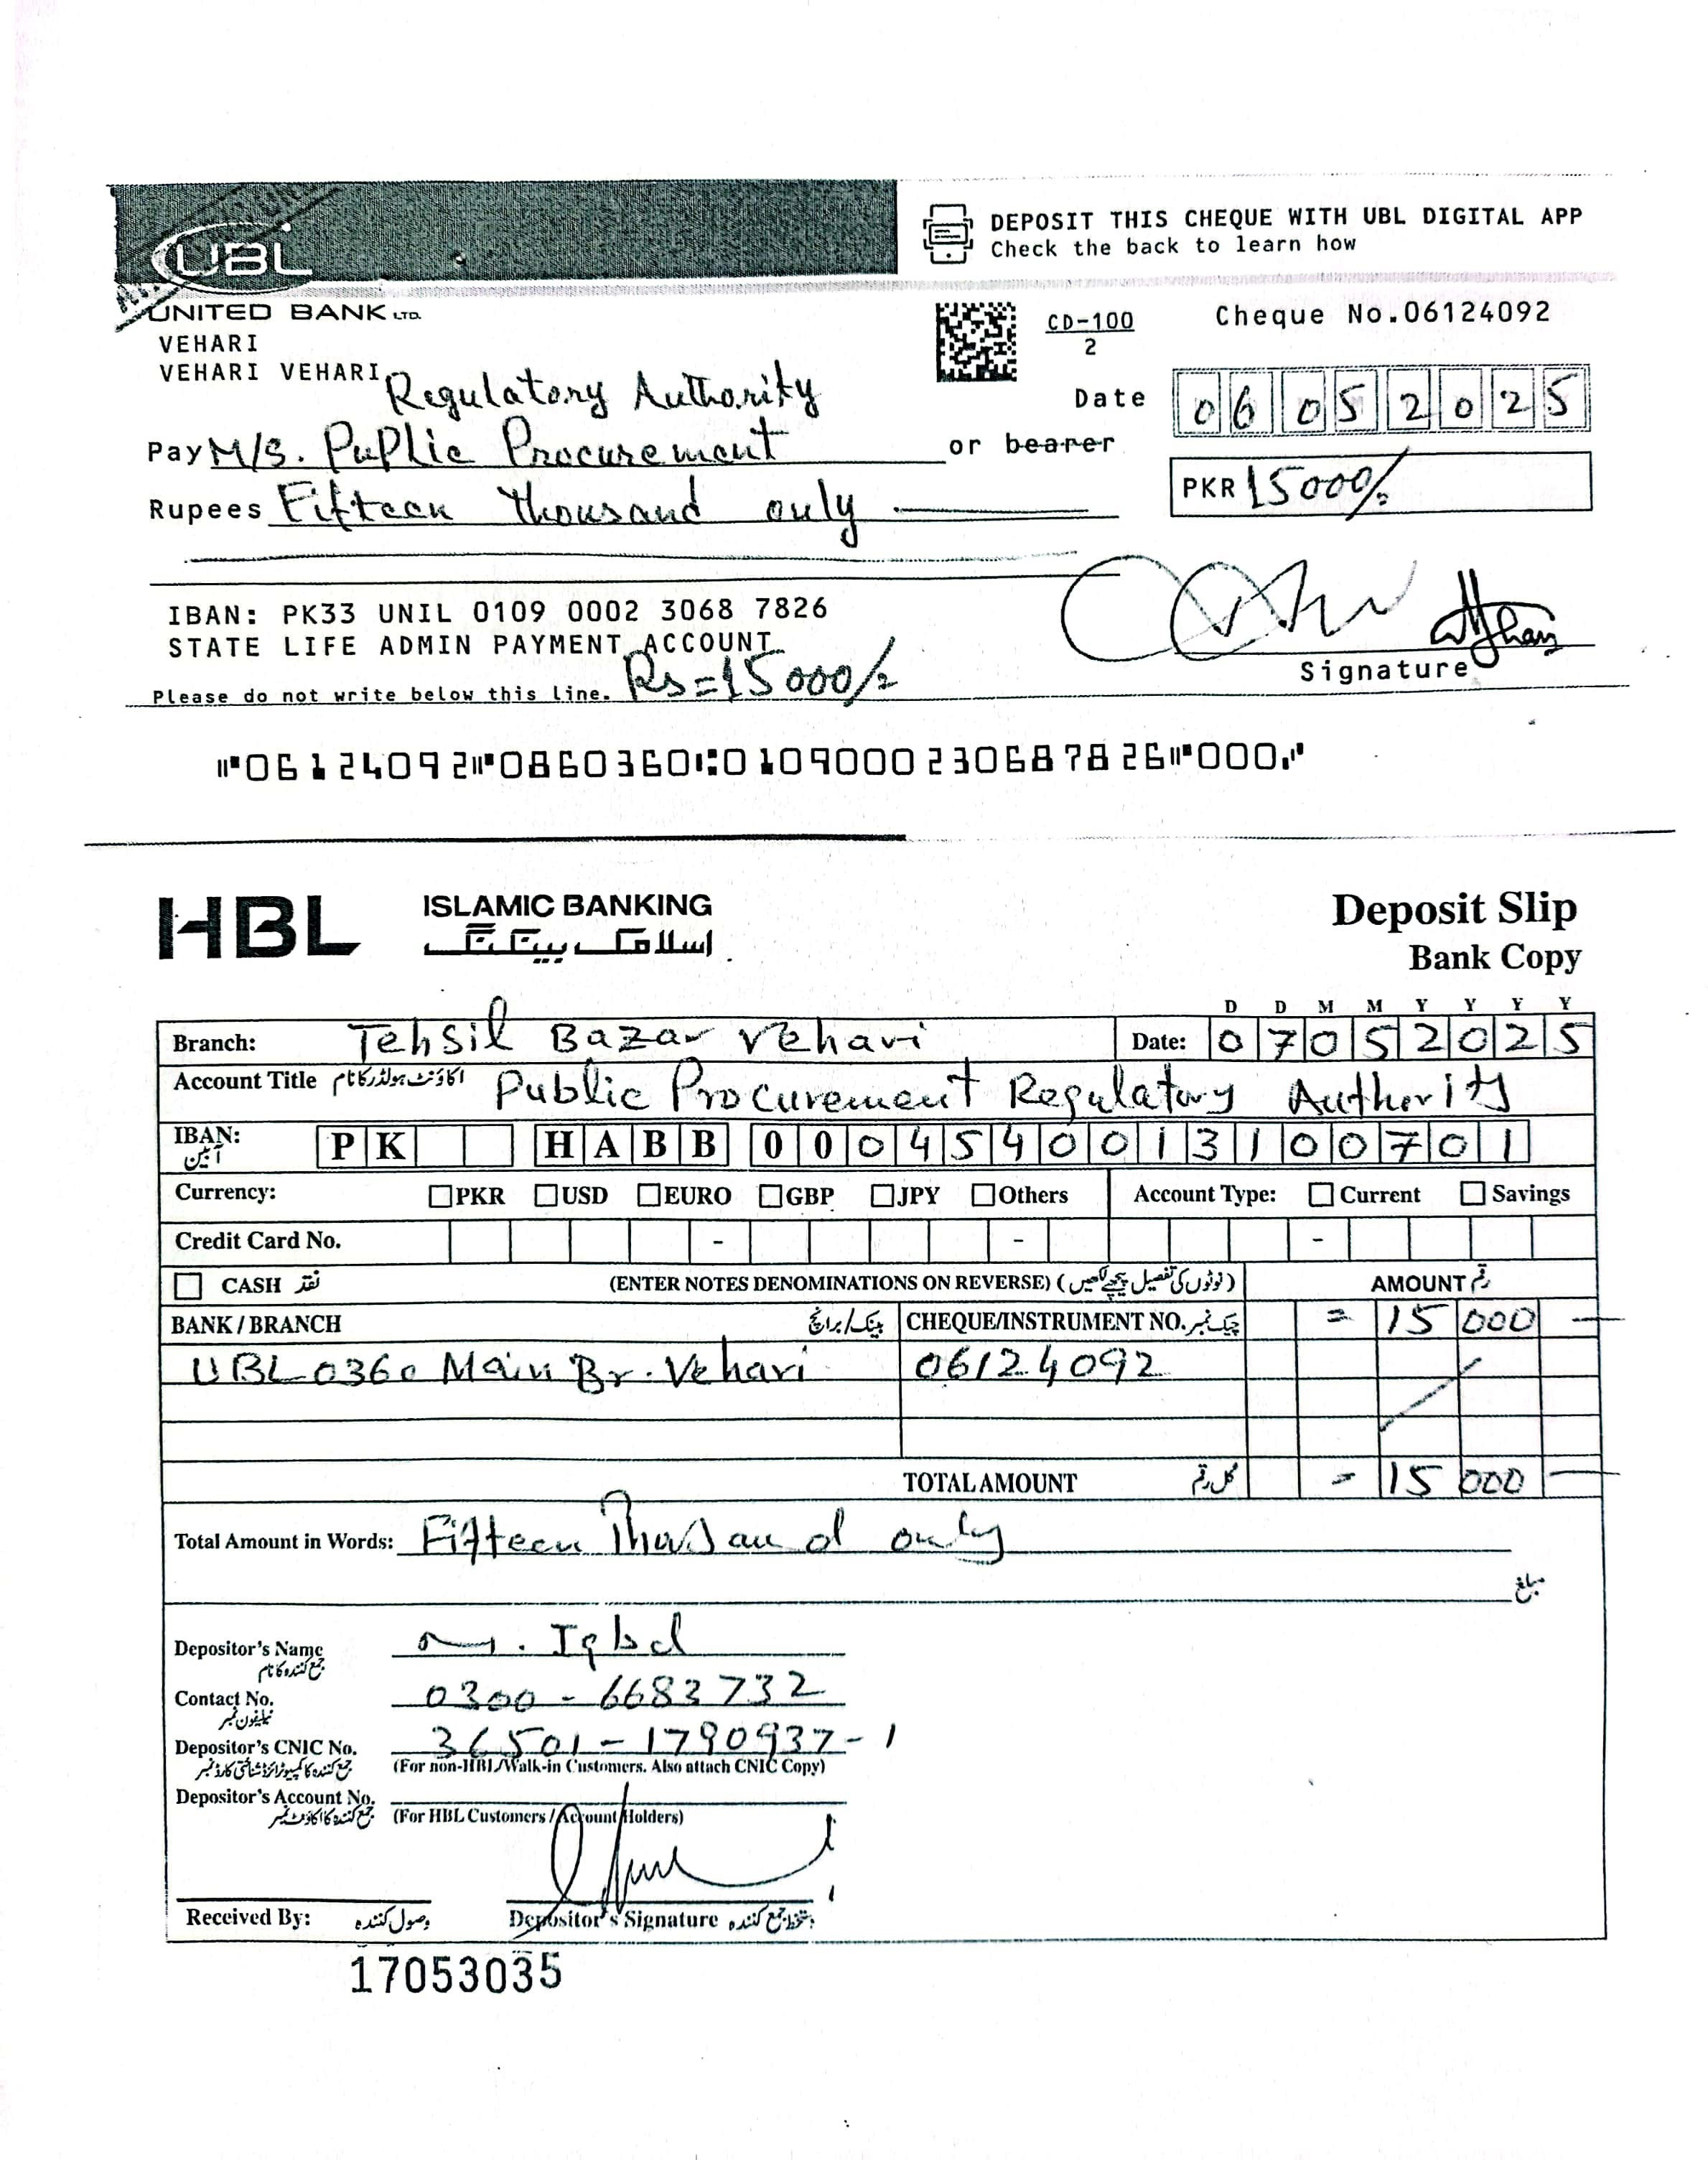 UBL
DEPOSIT THIS CHEQUE WITH UBL DIGITAL APP
Check the back to learn how
UNITED BANK LTD.
CD-100
2
Cheque No.06124092
VEHARI
VEHARI VEHARI
Date 06052025
Regulatory Authority
Pay M/S. PuPlic Procurement or bearer
Rupees Fifteen thousand only
PKR 15000/-
IBAN: PK33 UNIL 0109 0002 3068 7826
STATE LIFE ADMIN PAYMENT ACCOUNT
Rs=15000/-
Signature
Please do not write below this line.
⑈06124092⑈0860360⑆0109000230687826⑈000⑈
HBL ISLAMIC BANKING
اسلامک بینکنگ
Deposit Slip
Bank Copy
D D M M Y Y Y Y
Branch: Tehsil Bazar Vehari Date: 07052025
Account Title اکاؤنٹ ہولڈر کا نام Public Procurement Regulatory Authority
IBAN: PK HABB 0004540013100701
آئبن
Currency: PKR USD EURO GBP JPY Others Account Type: Current Savings
Credit Card No. - - -
CASH نقد (ENTER NOTES DENOMINATIONS ON REVERSE) (نوٹوں کی تفصیل پیچھے لکھیں) AMOUNT رقم
BANK / BRANCH بینک/برانچ CHEQUE/INSTRUMENT NO. چیک نمبر = 15 000 —
UBL 0360 Main Br. Vehari 06124092
TOTAL AMOUNT کل رقم = 15 000 —
Total Amount in Words: Fifteen Thousand only
مبلغ
Depositor's Name M. Iqbal
جمع کنندہ کا نام
Contact No. 0300 - 6683732
ٹیلیفون نمبر
Depositor's CNIC No. 36501-1790937-1
جمع کنندہ کا کمپیوٹرائزڈ شناختی کارڈ نمبر (For non-HBL/Walk-in Customers. Also attach CNIC Copy)
Depositor's Account No.
جمع کنندہ کا اکاؤنٹ نمبر (For HBL Customers / Account Holders)
Received By: وصول کنندہ Depositor's Signature دستخط جمع کنندہ
17053035